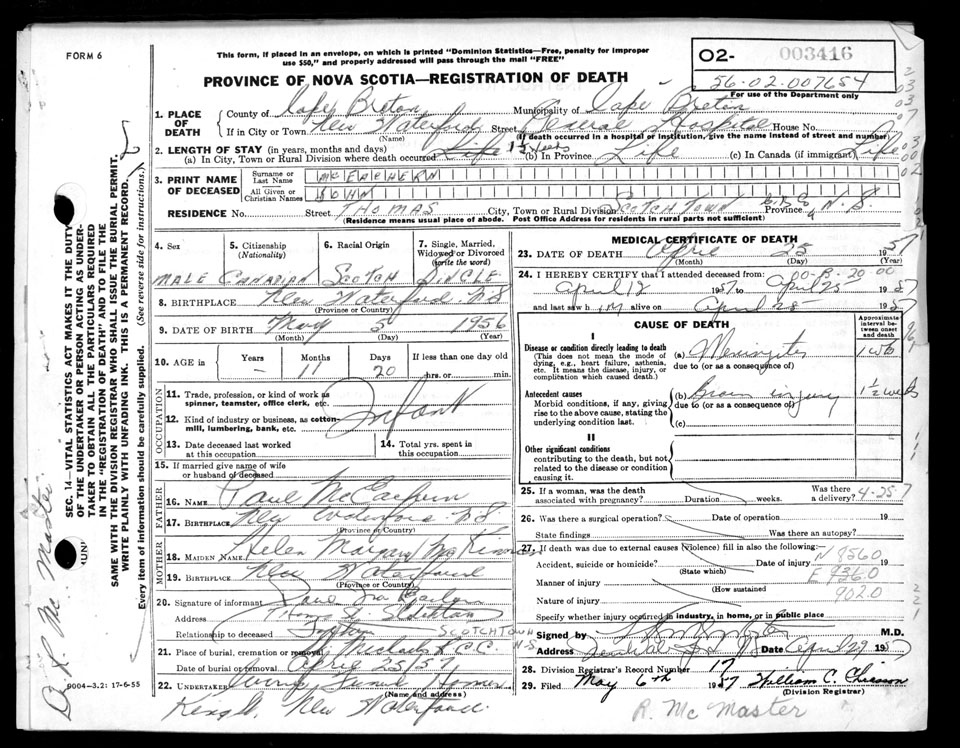 FORM 6
This form, if placed in an envelope, on which is printed "Dominion Statistics—Free, penalty for improper
use $50," and properly addressed will pass through the mail "FREE"
PROVINCE OF NOVA SCOTIA—REGISTRATION OF DEATH
O2- 003416
56-02-007654
For use of the Department only
1. PLACE OF DEATH
County of Cape Breton Municipality of Cape Breton
If in City or Town New Waterford Street General Hospital House No.
(Name) (If death occurred in a hospital or institution, give the name instead of street and number)
2. LENGTH OF STAY (in years, months and days)
(a) In City, Town or Rural Division where death occurred Life (b) In Province Life (c) In Canada (if immigrant) Life
3. PRINT NAME OF DECEASED
Surname or Last Name McEACHERN
All Given or Christian Names JOHN
RESIDENCE No. Street THOMAS City, Town or Rural Division SCOTCHTOWN N.S.
(Residence means usual place of abode. Post Office Address for residents in rural parts not sufficient)
4. Sex
5. Citizenship (Nationality)
6. Racial Origin
7. Single, Married, Widowed or Divorced (write the word)
MALE CANADIAN SCOTCH SINGLE
8. BIRTHPLACE New Waterford N.S
(Province or Country)
9. DATE OF BIRTH May 5 1956
(Month) (Day) (Year)
10. AGE in Years Months Days If less than one day old
- 11 20 hrs. or min.
OCCUPATION
11. Trade, profession, or kind of work as spinner, teamster, office clerk, etc.
Infant
12. Kind of industry or business, as cotton-mill, lumbering, bank, etc.
13. Date deceased last worked at this occupation
14. Total yrs. spent in this occupation
15. If married give name of wife or husband of deceased
FATHER
16. NAME Paul McEachern
17. BIRTHPLACE New Waterford N.S
(Province or Country)
MOTHER
18. MAIDEN NAME Helen Margary
19. BIRTHPLACE New Waterford
(Province or Country)
20. Signature of informant
Address
Relationship to deceased SCOTCHTOWN N-S
21. Place of burial, cremation or removal
Date of burial or removal April 25/57
22. UNDERTAKER Funeral Home
(Name and address)
New Waterford
MEDICAL CERTIFICATE OF DEATH
23. DATE OF DEATH April 25 1957
(Month) (Day) (Year)
24. I HEREBY CERTIFY that I attended deceased from:
April 12 1957 to April 25 1957
and last saw him alive on April 25 1957
CAUSE OF DEATH
Approximate interval between onset and death
I
Disease or condition directly leading to death
(This does not mean the mode of dying, e.g., heart failure, asthenia, etc. It means the disease, injury, or complication which caused death.)
(a) Meningitis 1 wk
due to (or as a consequence of)
Antecedent causes
Morbid conditions, if any, giving rise to the above cause, stating the underlying condition last.
(b) Brain injury 1½ weeks
due to (or as a consequence of)
(c)
II
Other significant conditions
contributing to the death, but not related to the disease or condition causing it.
25. If a woman, was the death associated with pregnancy? Duration weeks. Was there a delivery? 4-25
26. Was there a surgical operation? Date of operation 19
State findings Was there an autopsy?
27. If death was due to external causes (violence) fill in also the following:—
N 9560
Accident, suicide or homicide? Date of injury 19
(State which)
Manner of injury
(How sustained)
9020
Nature of injury
Specify whether injury occurred in industry, in home, or in public place
Signed by M.D.
Address Date April 29 1957
28. Division Registrar's Record Number 17
29. Filed May 6th 1957 William C. Chiasson
(Division Registrar)
R. McMaster
SEC. 14—VITAL STATISTICS ACT MAKES IT THE DUTY
OF THE UNDERTAKER OR PERSON ACTING AS UNDER-
TAKER TO OBTAIN ALL THE PARTICULARS REQUIRED
IN THE "REGISTRATION OF DEATH" AND TO FILE THE
SAME WITH THE DIVISION REGISTRAR WHO SHALL ISSUE THE BURIAL PERMIT.
WRITE PLAINLY WITH UNFADING INK. THIS IS A PERMANENT RECORD.
Every item of information should be carefully supplied. (See reverse side for instructions.)
9004-3.2: 17-6-55